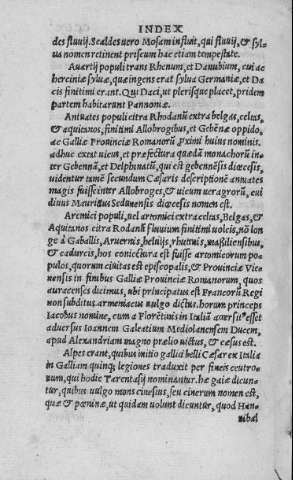 INDEX
des fluuij. Scaldes uero Mosam influit, qui fluuij, & syl
uas nomen retinent priscum hac etiam tempestate.
Auartij populi trans Rhenum, et Danubium, cui ac
herciniæ syluæ, quæ ingens erat sylua Germaniæ, et Da
cis finitimi erant. Qui Daci, ut plerisque placet, pridem
partem habitarunt Pannoniæ.
Antuates populi citra Rhodanū extra belgas, celtas,
& aquitanos, finitimi Allobrogibus, et Gebēnæ oppido,
ac Galliæ Prouinciæ Romanorū pximi huius nominis.
adhuc extat uicus, et præfectura quædā monachorū in
ter Gebennā, et Delphinatū, qui est gebennēsis diœcesis,
uidentur tamē secundum Cæsaris descriptionē antuates
magis fuisse inter Allobroges, & uicum ueragrorū, cui
diuus Mauritius Sedunensis diœcesis nomen est.
Aremici populi, uel artomici extra celtas, Belgas, &
Aquitanos citra Rodanū fluuium finitimi uolcis, nō lon
ge à Gaballis, Aruernis, heluijs, rhutenis, maßiliensibus,
& cadurcis, hos conicētura est fuisse artomicorum po
pulos, quorum ciuitas est episcopalis, & Prouinciæ Vien
nensis in finibus Galliæ Prouinciæ Romanorum, quos
auracenses dicimus, ubi principatus est Francorū Regi
non subditus, armeniacus uulgo dictus. horum princeps
Iacobus nomine, cum a Florētinis in Italiā accersit° esset
aduersus Ioannem Galeatium Mediolanensem Ducem,
apud Alexandriam magno prælio uictus, & cæsus est.
Alpes erant, quibus initio gallici belli Cæsar ex Italia
in Galliam quinq; legiones traduxit per fineis ceutro-
num, qui hodie Tarentasij nominantur. hæ gaiæ dicun-
tur, quibus uulgo mons cinesius, seu cinerum nomen est,
quæ & pœninæ, ut quidam uolunt dicuntur, quod Han-
nibal